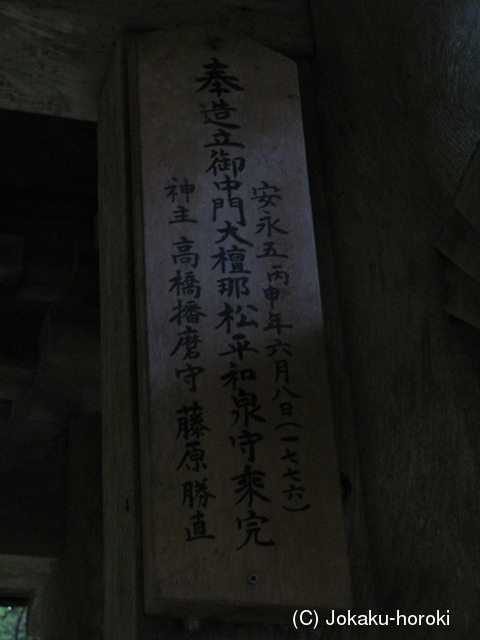 安永五丙申年六月八日(一七七六)
奉造立御中門大檀那松平和泉守乘完
神主 高橋播磨守 藤原勝直
(C) Jokaku-horoki